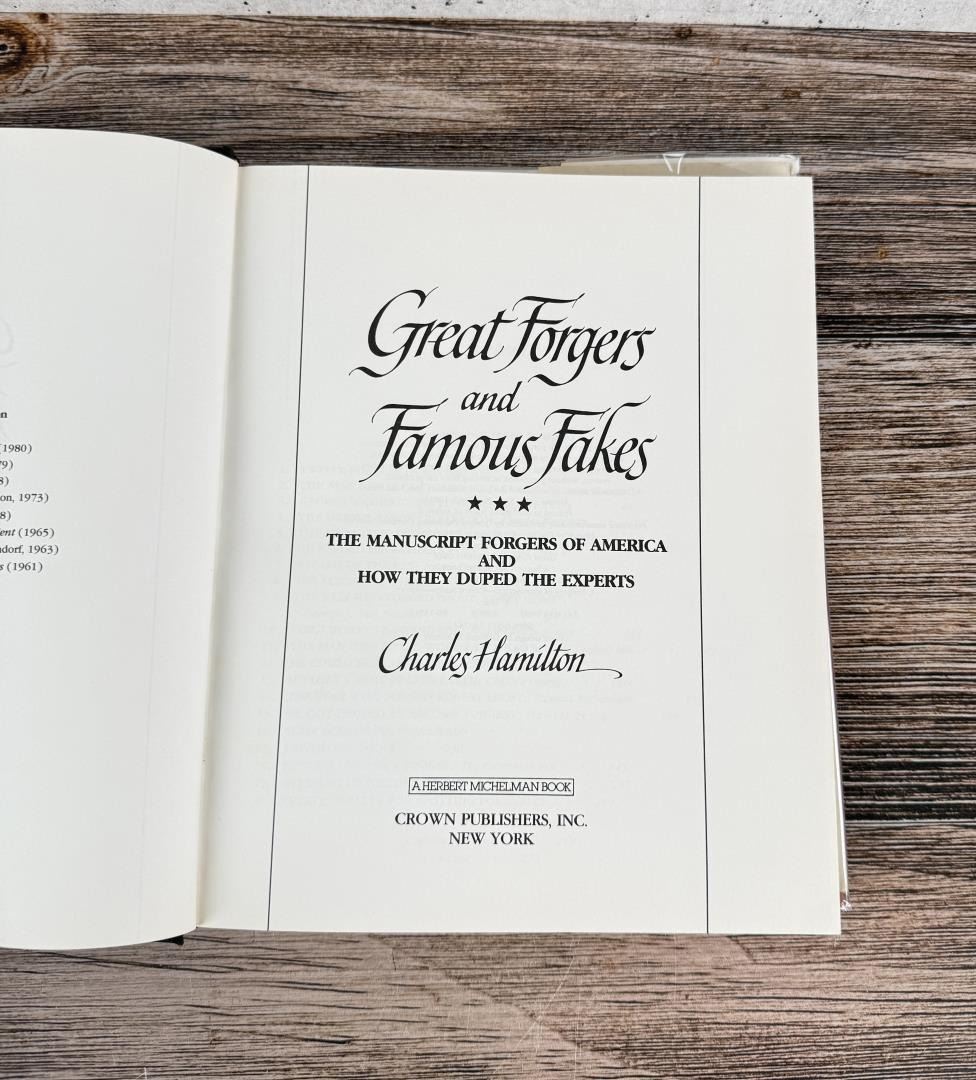 n
(1980)
9)
8)
on, 1973)
8)
ent (1965)
dorf, 1963)
s (1961)
Great Forgers
and
Famous Fakes
★ ★ ★
THE MANUSCRIPT FORGERS OF AMERICA
AND
HOW THEY DUPED THE EXPERTS
Charles Hamilton
A HERBERT MICHELMAN BOOK
CROWN PUBLISHERS, INC.
NEW YORK